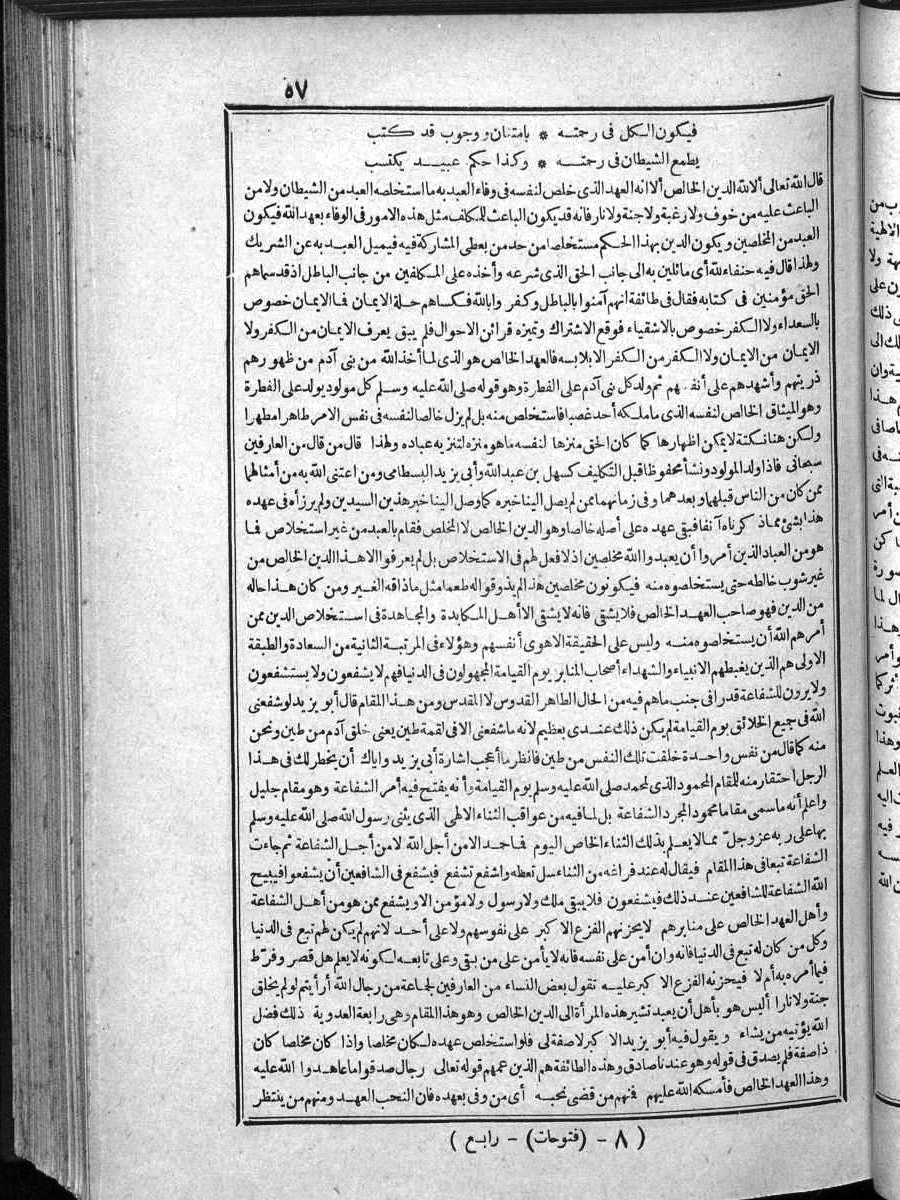 ٥٧
فيكون الكل في رحمته * بامتنان ووجوب قد كتب
يطمع الشيطان في رحمته * وكذا حكم عبيد يكتسب
قال الله تعالى ألا لله الدين الخالص ألا انه العهد الذى خلص لنفسه فى وفاء العبد به ما استخلصه العبد من الشيطان ولا من
الباعث عليه من خوف ولا رغبة ولا جنة ولا نار فانه قد يكون الباعث للمكلف مثل هذه الامور فى الوفاء بعهد الله فيكون
العبد من المخلصين ويكون الدين بهذا الحكم مستخلصا من حد من يعطى المشاركة فيه فيميل العبد به عن الشريك
ولهذا قال فيه حنفاء لله أى مائلين به الى جانب الحق الذى شرعه وأخذه على المكلفين من جانب الباطل اذ قد سماهم
الحق مؤمنين فى كتابه فقال فى طائفة انهم آمنوا بالباطل وكفروا بالله فكساهم حلة الايمان فما الايمان خصوص
بالسعداء ولا الكفر خصوص بالاشقياء فوقع الاشتراك وتميزه قرائن الاحوال فلم يبق يعرف الايمان من الكفر ولا
الايمان من الايمان ولا الكفر من الكفر الا بلابسه فالعهد الخالص هو الذى لما أخذ الله من بنى آدم من ظهورهم
ذريتهم وأشهدهم على أنفسهم ثم ولد كل بنى آدم على الفطرة وهو قوله صلى الله عليه وسلم كل مولود يولد على الفطرة
وهو الميثاق الخالص لنفسه الذى ما ملكه أحد غصبا فاستخلص منه بل لم يزل خالصا لنفسه فى نفس الامر طاهرا مطهرا
ولكن هنا نكتة لا يمكن اظهارها كما كان الحق منزها لنفسه ما هو منزه لتنزيه عباده ولهذا قال من قال من العارفين
سبحانى فاذا ولد المولود ونشأ محفوظا قبل التكليف كسهل بن عبد الله وأبى يزيد البسطامى ومن اعتنى الله به من أمثالهما
ممن كان من الناس قبلهما وبعدهما وفى زمانهما ممن لم يصل الينا خبره كما وصل الينا خبر هذين السيدين ولم يرزأه فى عهده
هذا بشئ مما ذكرناه آنفا فبقى عهده على أصله خالصا وهو الدين الخالص لا المخلص فقام بالعبد من غير استخلاص فما
هو من العباد الذين أمروا أن يعبدوا الله مخلصين اذ لا فعل لهم فى الاستخلاص بل لم يعرفوا الا هذا الدين الخالص من
غير شوب خالطه حتى يستخلصوه منه فيكونون مخلصين هذا لم يذوقوا له طعما مثل ما ذاقه الغير ومن كان هذا حاله
من الدين فهو صاحب العهد الخالص فلا يشقى فانه لا يشقى الا أهل المكابدة والمجاهدة فى استخلاص الدين ممن
أمرهم الله أن يستخلصوه منه وليس على الحقيقة الا هوى أنفسهم وهؤلاء فى المرتبة الثانية من السعادة والطبقة
الاولى هم الذين يغبطهم الانبياء والشهداء أصحاب المنابر يوم القيامة المجهولون فى الدنيا فهم لا يشفعون ولا يستشفعون
ولا يرون للشفاعة قدرا فى جنب ما هم فيه من الحال الطاهر القدوس لا المقدس ومن هذا المقام قال أبو يزيد لو شفعنى
الله فى جميع الخلائق يوم القيامة لم يكن ذلك عندى بعظيم لانه ما شفعنى الا فى لقمة طين يعنى خلق آدم من طين ونحن
منه كما قال من نفس واحدة خلقت تلك النفس من طين فانظر ما أعجب اشارة أبى يزيد واياك أن يخطر لك فى هذا
الرجل احتقار منه للمقام المحمود الذى لمحمد صلى الله عليه وسلم يوم القيامة وأنه يفتح فيه أمر الشفاعة وهو مقام جليل
واعلم أنه ما سمى مقاما محمودا لمجرد الشفاعة بل لما فيه من عواقب الثناء الالهى الذى يثنى رسول الله صلى الله عليه وسلم
بها على ربه عز وجل مما لا يعلم بذلك الثناء الخاص اليوم فما حمد الا من أجل الله لا من أجل الشفاعة ثم جاءت
الشفاعة تبعا فى هذا المقام فيقال له عند فراغه من الثناء سل تعطه واشفع تشفع فيشفع فى الشافعين أن يشفعوا فيبيح
الله الشفاعة للشافعين عند ذلك فيشفعون فلا يبقى ملك ولا رسول ولا مؤمن الا ويشفع ممن هو من أهل الشفاعة
وأهل العهد الخالص على منابرهم لا يحزنهم الفزع الاكبر على نفوسهم ولا على أحد لانهم لم يكن لهم تبع فى الدنيا
وكل من كان له تبع فى الدنيا فانه وان أمن على نفسه فانه لا يأمن على من بقى وعلى تابعه لكونه لا يعلم هل قصر وفرط
فيما أمره به أم لا فيحزنه الفزع الاكبر عليه تقول بعض النساء من العارفين لجماعة من رجال الله أرأيتم لو لم يخلق
جنة ولا نارا أليس هو بأهل أن يعبد تشير هذه المرأة الى الدين الخالص وهو هذا المقام وهى رابعة العدوية ذلك فضل
الله يؤتيه من يشاء ويقول فيه أبو يزيد الاكبر لا صفة لى فلو استخلص عهده لكان مخلصا واذا كان مخلصا كان
ذا صفة فلم يصدق فى قوله وهو عندنا صادق وهذه الطائفة هم الذين عمهم قوله تعالى رجال صدقوا ما عاهدوا الله عليه
وهذا العهد الخالص فأمسكه الله عليهم فمنهم من قضى نحبه أى من وفى بعهده فان النحب العهد ومنهم من ينتظر
( ٨ - (فتوحات) - رابع )